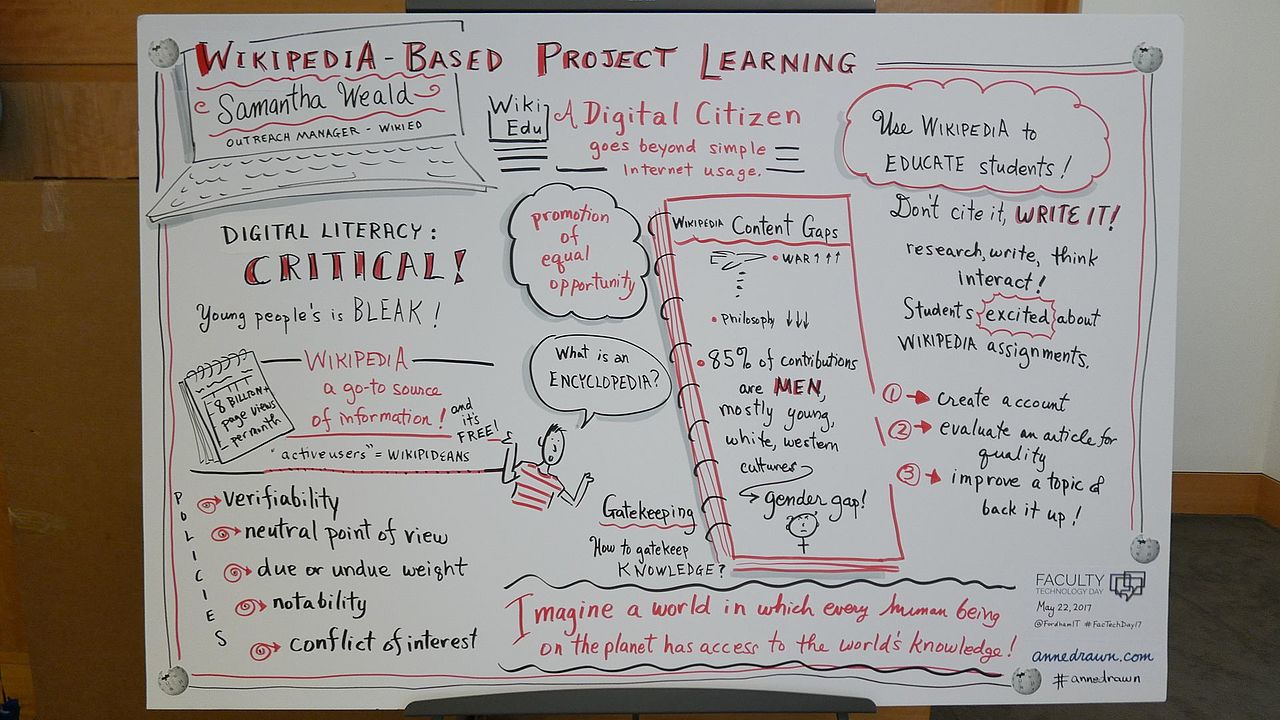 WIKIPEDIA-BASED PROJECT LEARNING
Samantha Weald
OUTREACH MANAGER - WIKIED
Wiki
Edu
A Digital Citizen
goes beyond simple
Internet usage.
Use WIKIPEDIA to
EDUCATE students!
DIGITAL LITERACY:
CRITICAL!
Young people's is BLEAK!
WIKIPEDIA
a go-to source
of information!
and
it's
FREE!
8 BILLION+
page views
per month
"active users" = WIKIPIDEANS
POLICIES
verifiability
neutral point of view
due or undue weight
notability
conflict of interest
promotion
of
equal
opportunity
What is an
ENCYCLOPEDIA?
Gatekeeping
How to gatekeep
KNOWLEDGE?
WIKIPEDIA Content Gaps
• WAR ↑↑↑
• Philosophy ↓↓↓
• 85% of contributions
are MEN,
mostly young,
white, western
cultures
gender gap!
Don't cite it, WRITE IT!
research, write, think
interact!
Students excited about
WIKIPEDIA assignments.
1 → create account
2 → evaluate an article for
quality
3 → improve a topic &
back it up!
Imagine a world in which every human being
on the planet has access to the world's knowledge!
FACULTY
TECHNOLOGY DAY
May 22, 2017
@FordhamIT #FacTechDay17
annedrawn.com
#annedrawn